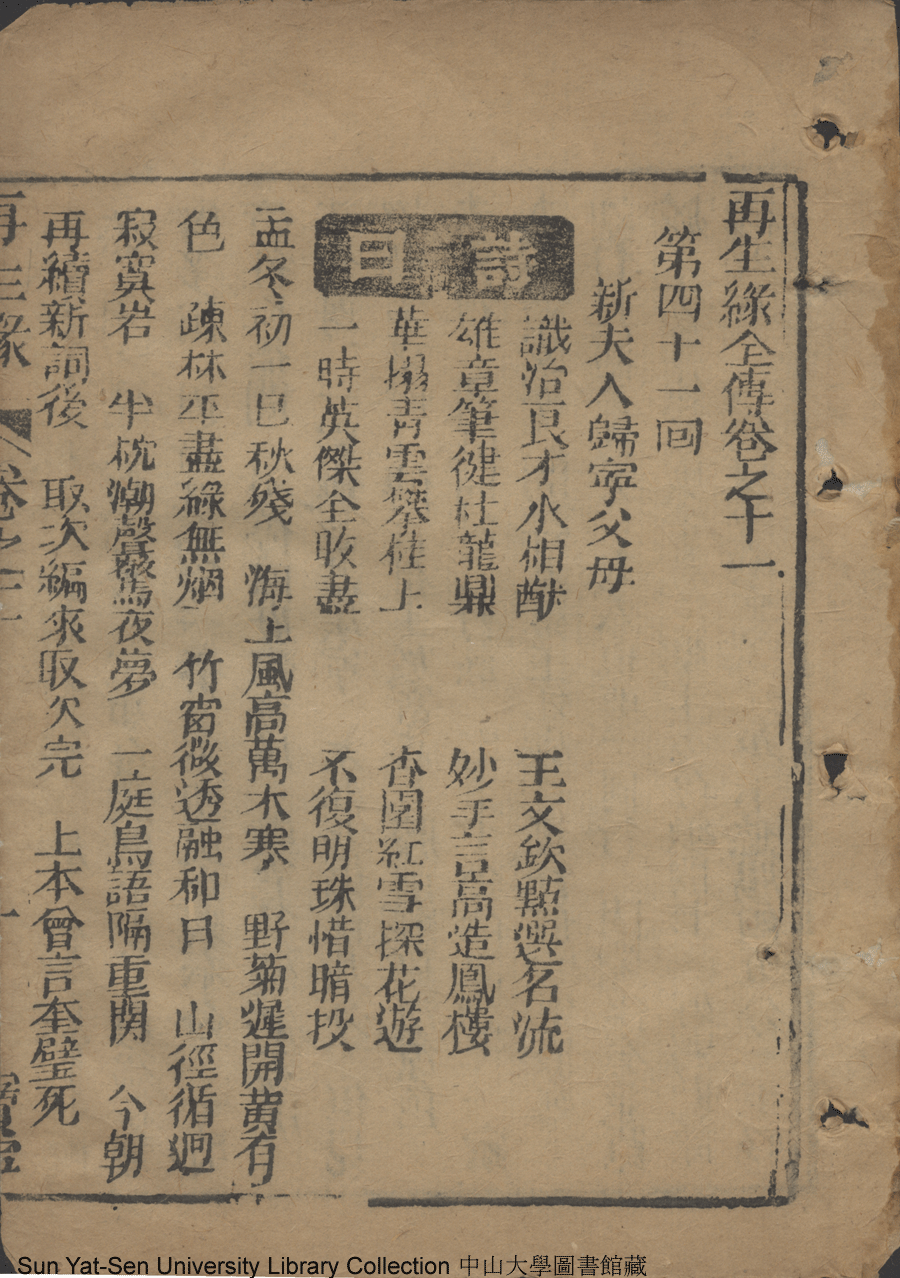 再生緣全傳卷之十一
第四十一回
新夫人歸寧父母
詩曰
識治良才水相酬　王文欽點選名流
雄章筆健杜龍鼎　妙手言高造鳳樓
華搦青雲攀桂上　杏園紅雪探花遊
一時英傑全收盡　不復明珠惜暗投
孟冬初一巳秋殘　海上風高萬木寒　野菊遲開黃有
色　疎林平盡綠無烟　竹窗微透融和日　山徑循迴
寂寞岩　半枕潮聲驚夜夢　一庭鳥語隔重関　今朝
再續新詞後　取次編來取次完　上本曾言奎璧死
再生緣　卷之十一　一　寶寧
Sun Yat-Sen University Library Collection 中山大學圖書館藏